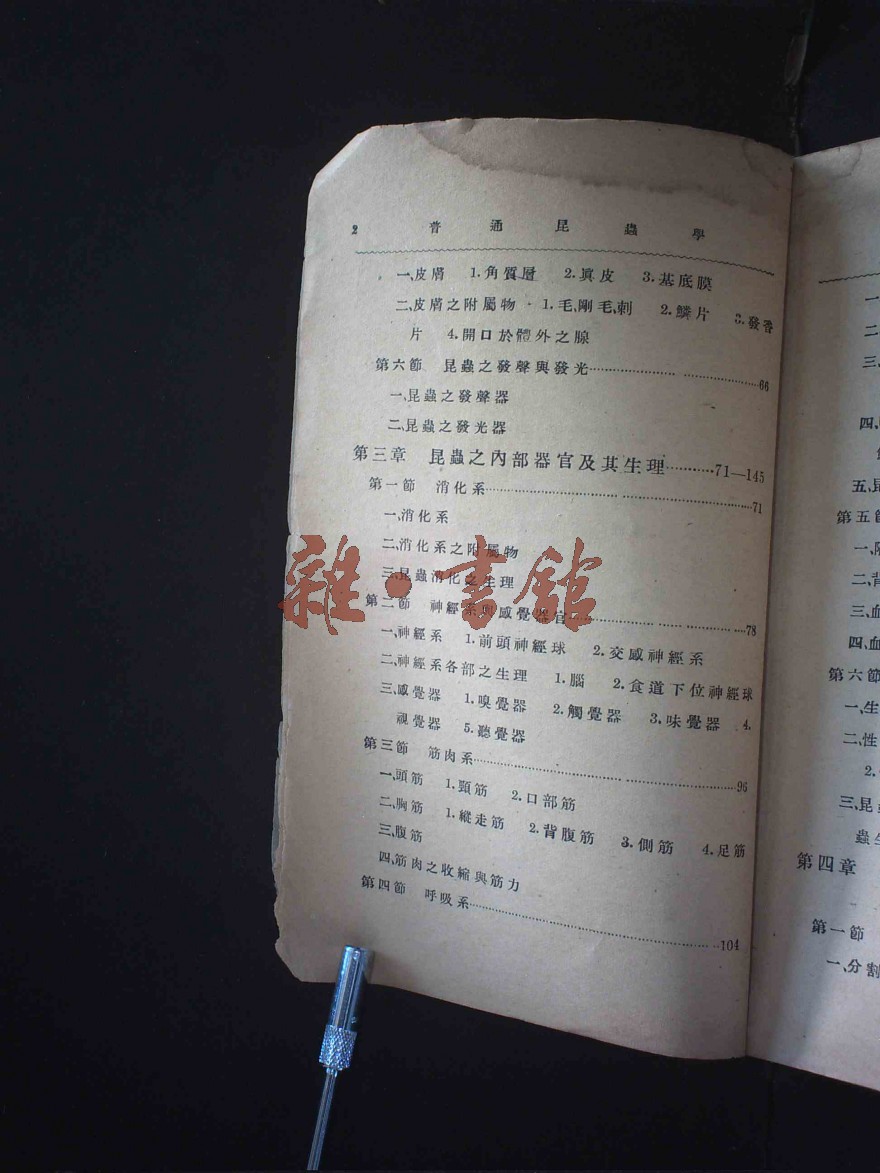 2 普通昆蟲學
一、皮膚 1.角質層 2.眞皮 3.基底膜
二、皮膚之附屬物 1.毛,剛毛,刺 2.鱗片 3.發香
片 4.開口於體外之腺
第六節 昆蟲之發聲與發光……66
一、昆蟲之發聲器
二、昆蟲之發光器
第三章 昆蟲之內部器官及其生理……71—145
第一節 消化系……71
一、消化系
二、消化系之附屬物
三、昆蟲消化之生理
第二節 神經系與感覺器官……78
一、神經系 1.前頭神經球 2.交感神經系
二、神經系各部之生理 1.腦 2.食道下位神經球
三、感覺器 1.嗅覺器 2.觸覺器 3.味覺器 4.
視覺器 5.聽覺器
第三節 筋肉系……96
一、頭筋 1.頸筋 2.口部筋
二、胸筋 1.縱走筋 2.背腹筋 3.側筋 4.足筋
三、腹筋
四、筋肉之收縮與筋力
第四節 呼吸系……104
雜·書館
一
二
三、
四、
五、昆
第五節
一、
二、背
三、血
四、血
第六節
一、生
二、性
2.
三、昆
蟲生
第四章
第一節
一、分割